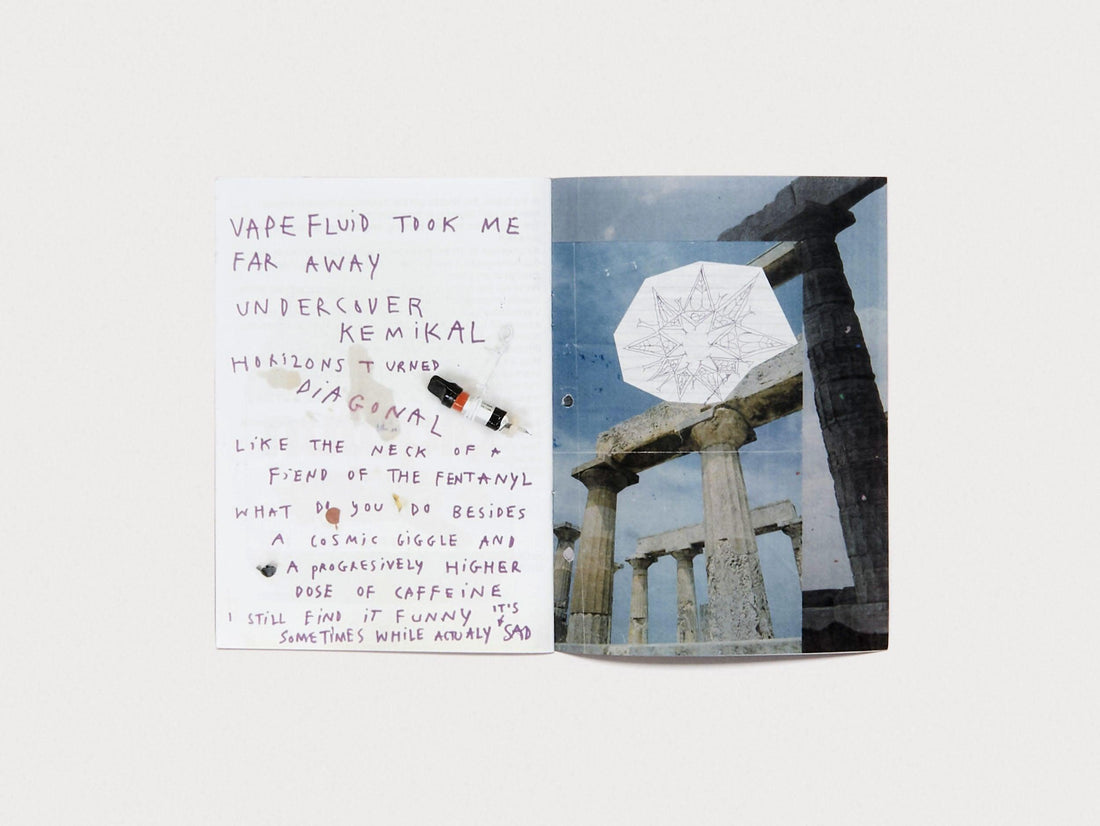 VAPE FLUiD TOOK ME
FAR AWAY
UNDERCOVER
KEMiKAL
HORIZONS TURNED
DiAGONAL
LiKE THE NECK OF A
FiEND OF THE FENTANYL
WHAT DO YOU DO BESIDES
A COSMiC GiGGLE AND
A PROGRESiVELY HiGHER
DOSE OF CAFFEiNE
I STiLL FiND iT FUNNY iT'S
SOMETiMES WHiLE ACTUALY SAD